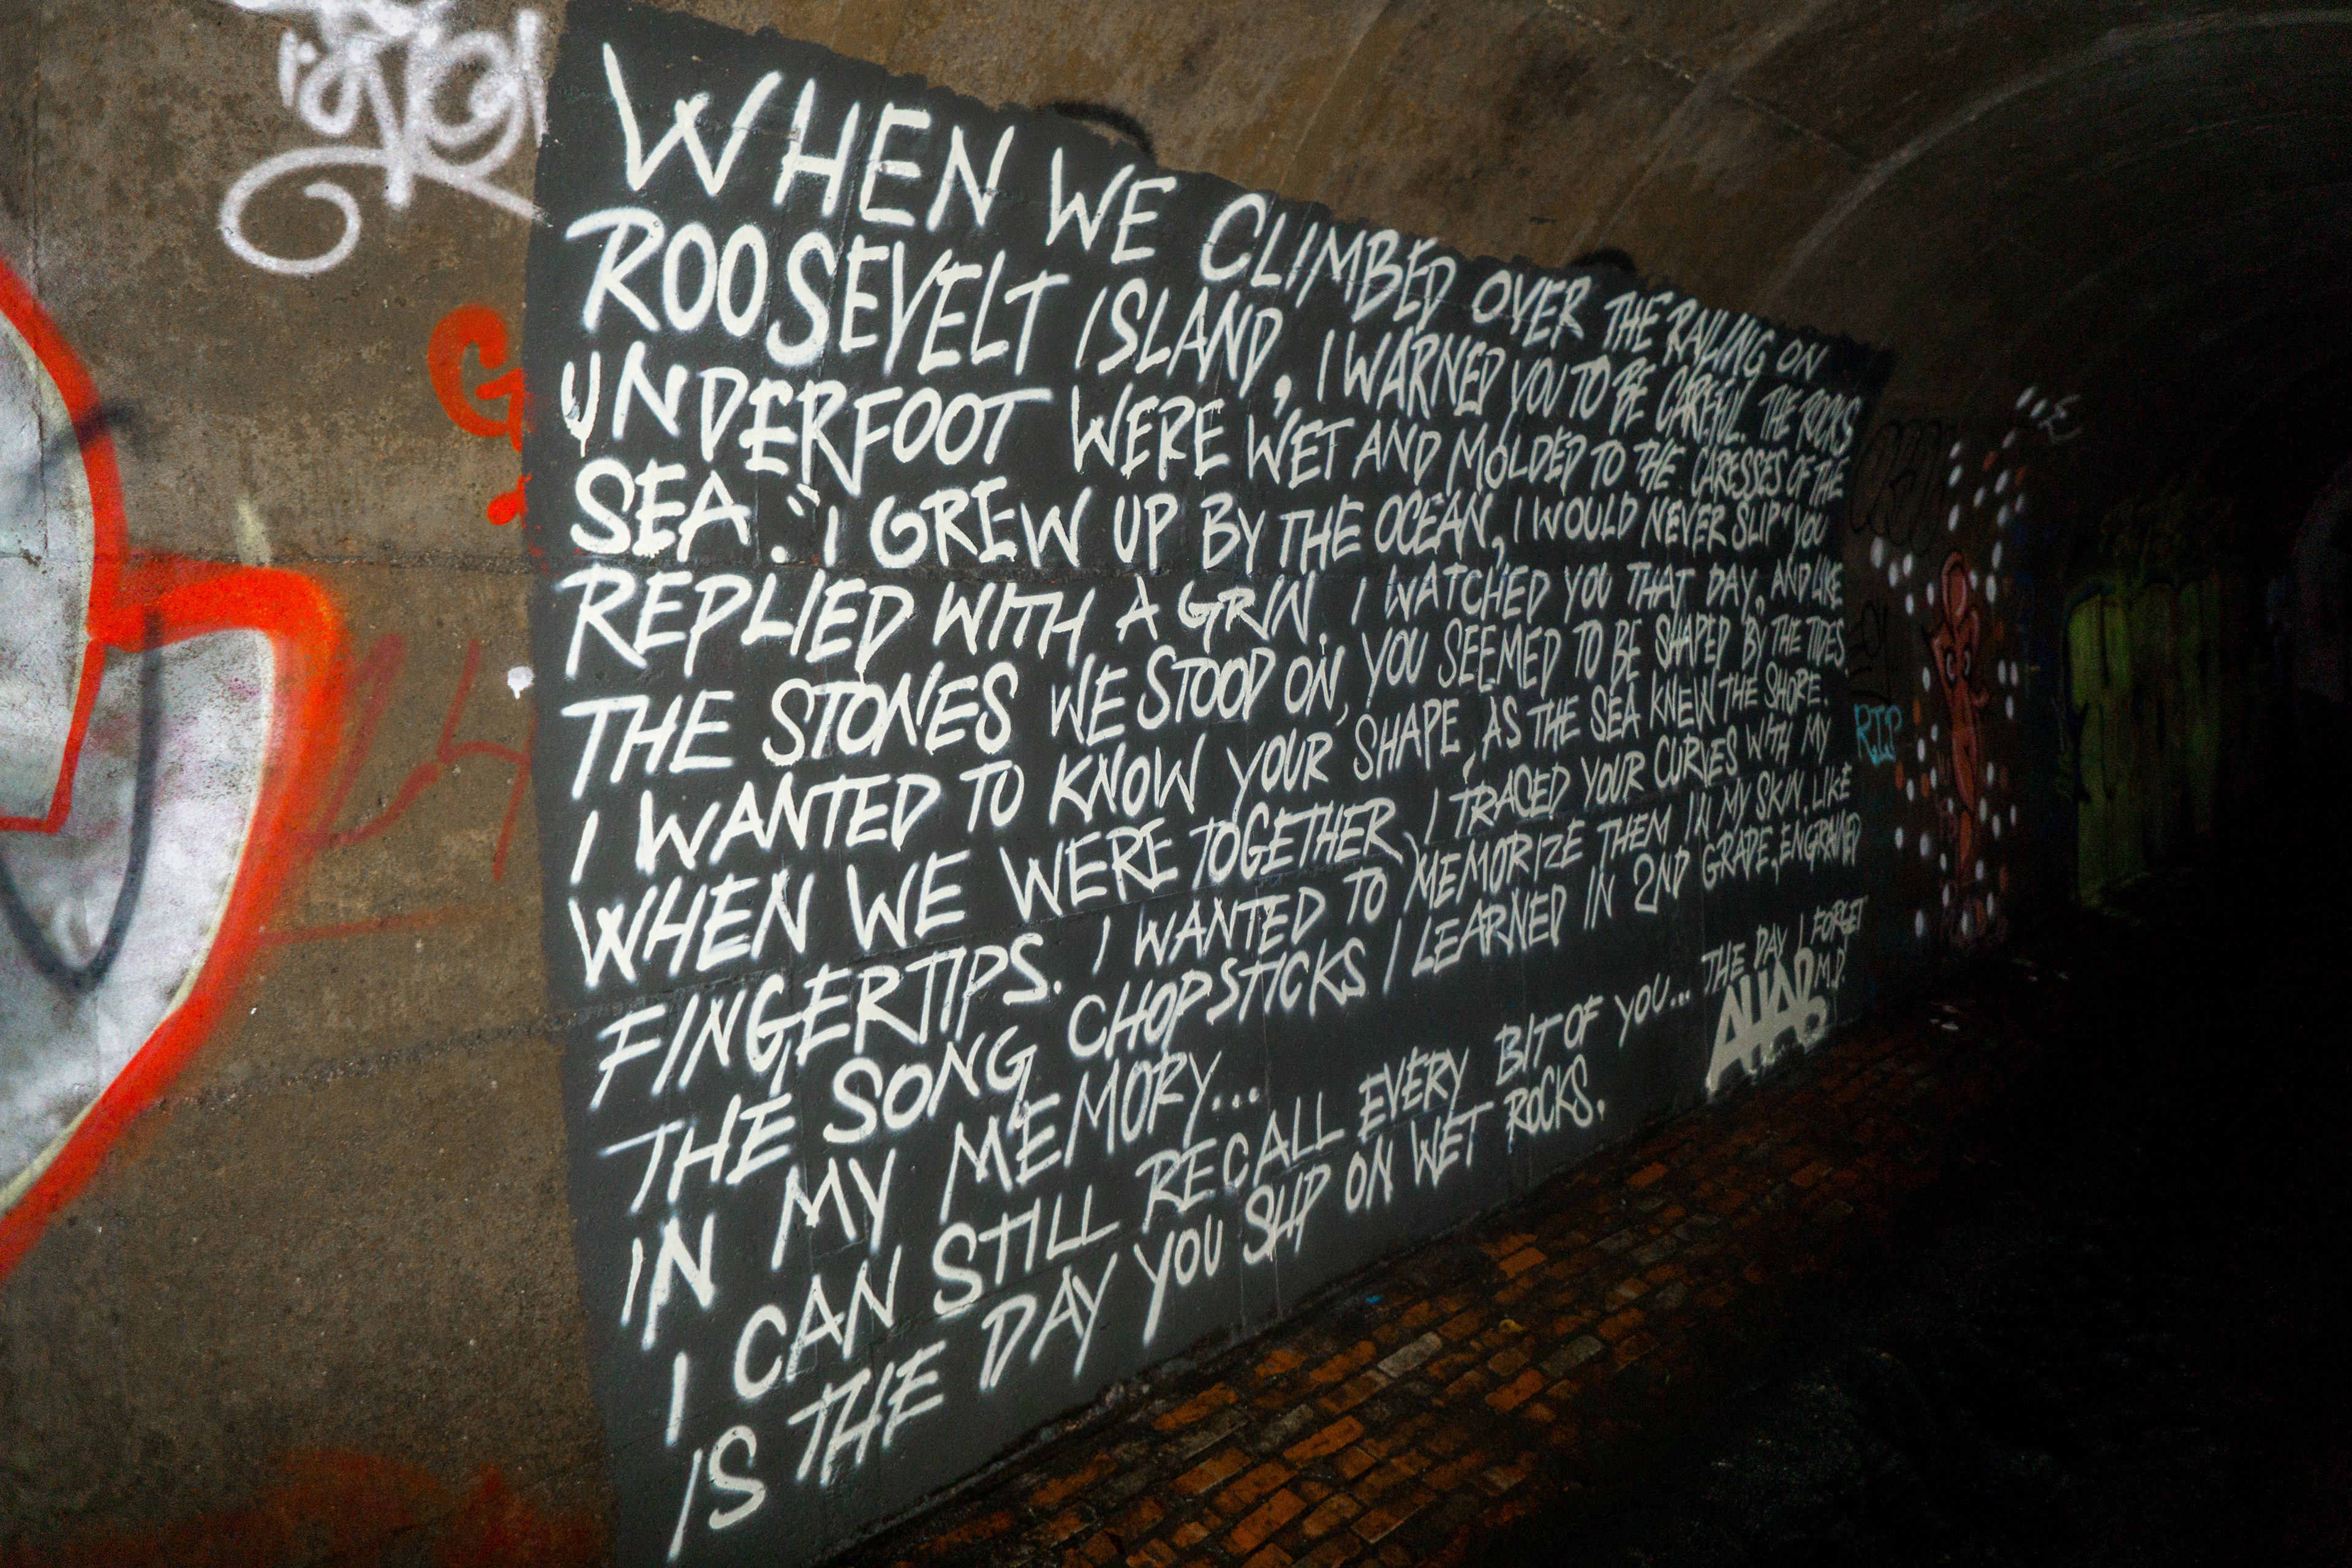 WHEN WE CLIMBED OVER THE RAILING ON
ROOSEVELT ISLAND, I WARNED YOU TO BE CAREFUL. THE ROCKS
UNDERFOOT WERE WET AND MOLDED TO THE CARESSES OF THE
SEA. "I GREW UP BY THE OCEAN, I WOULD NEVER SLIP" YOU
REPLIED WITH A GRIN. I WATCHED YOU THAT DAY, AND LIKE
THE STONES WE STOOD ON, YOU SEEMED TO BE SHAPED BY THE TIDES.
I WANTED TO KNOW YOUR SHAPE, AS THE SEA KNEW THE SHORE.
WHEN WE WERE TOGETHER, I TRACED YOUR CURVES WITH MY
FINGERTIPS. I WANTED TO MEMORIZE THEM IN MY SKIN. LIKE
THE SONG CHOPSTICKS I LEARNED IN 2ND GRADE, ENGRAINED
IN MY MEMORY...
I CAN STILL RECALL EVERY BIT OF YOU... THE DAY I FORGET
IS THE DAY YOU SLIP ON WET ROCKS.
AHAB M.D.
RIP